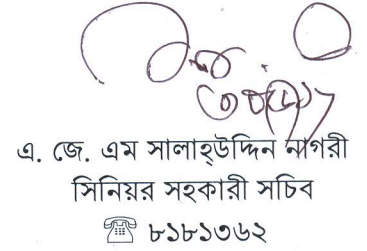 এ. জে. এম সালাহ্‌উদ্দিন নাগরী
সিনিয়র সহকারী সচিব
☎ ৮১৮১৩৬২